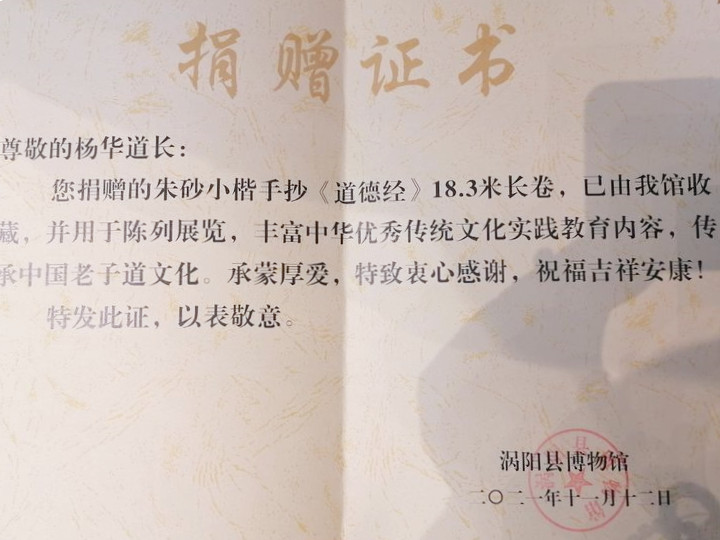 捐赠证书
尊敬的杨华道长：
您捐赠的朱砂小楷手抄《道德经》18.3米长卷，已由我馆收
藏，并用于陈列展览，丰富中华优秀传统文化实践教育内容，传
承中国老子道文化。承蒙厚爱，特致衷心感谢，祝福吉祥安康！
特发此证，以表敬意。
涡阳县博物馆
二〇二一年十一月十二日